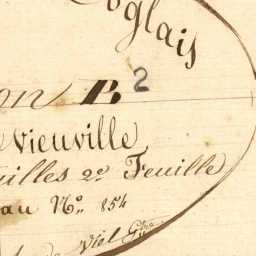 oglais
on B 2
evieuville
uilles 2e Feuille
au No. 854
de Viel